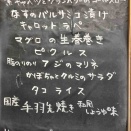 なすのバルサミコ漬け
キャロットラペ
マグロの生春巻き
ピクルス
脂ののり アジのマリネ
かぼちゃとクルミのサラダ
タコライス
国産 手羽先焼き 和風しょうゆ味